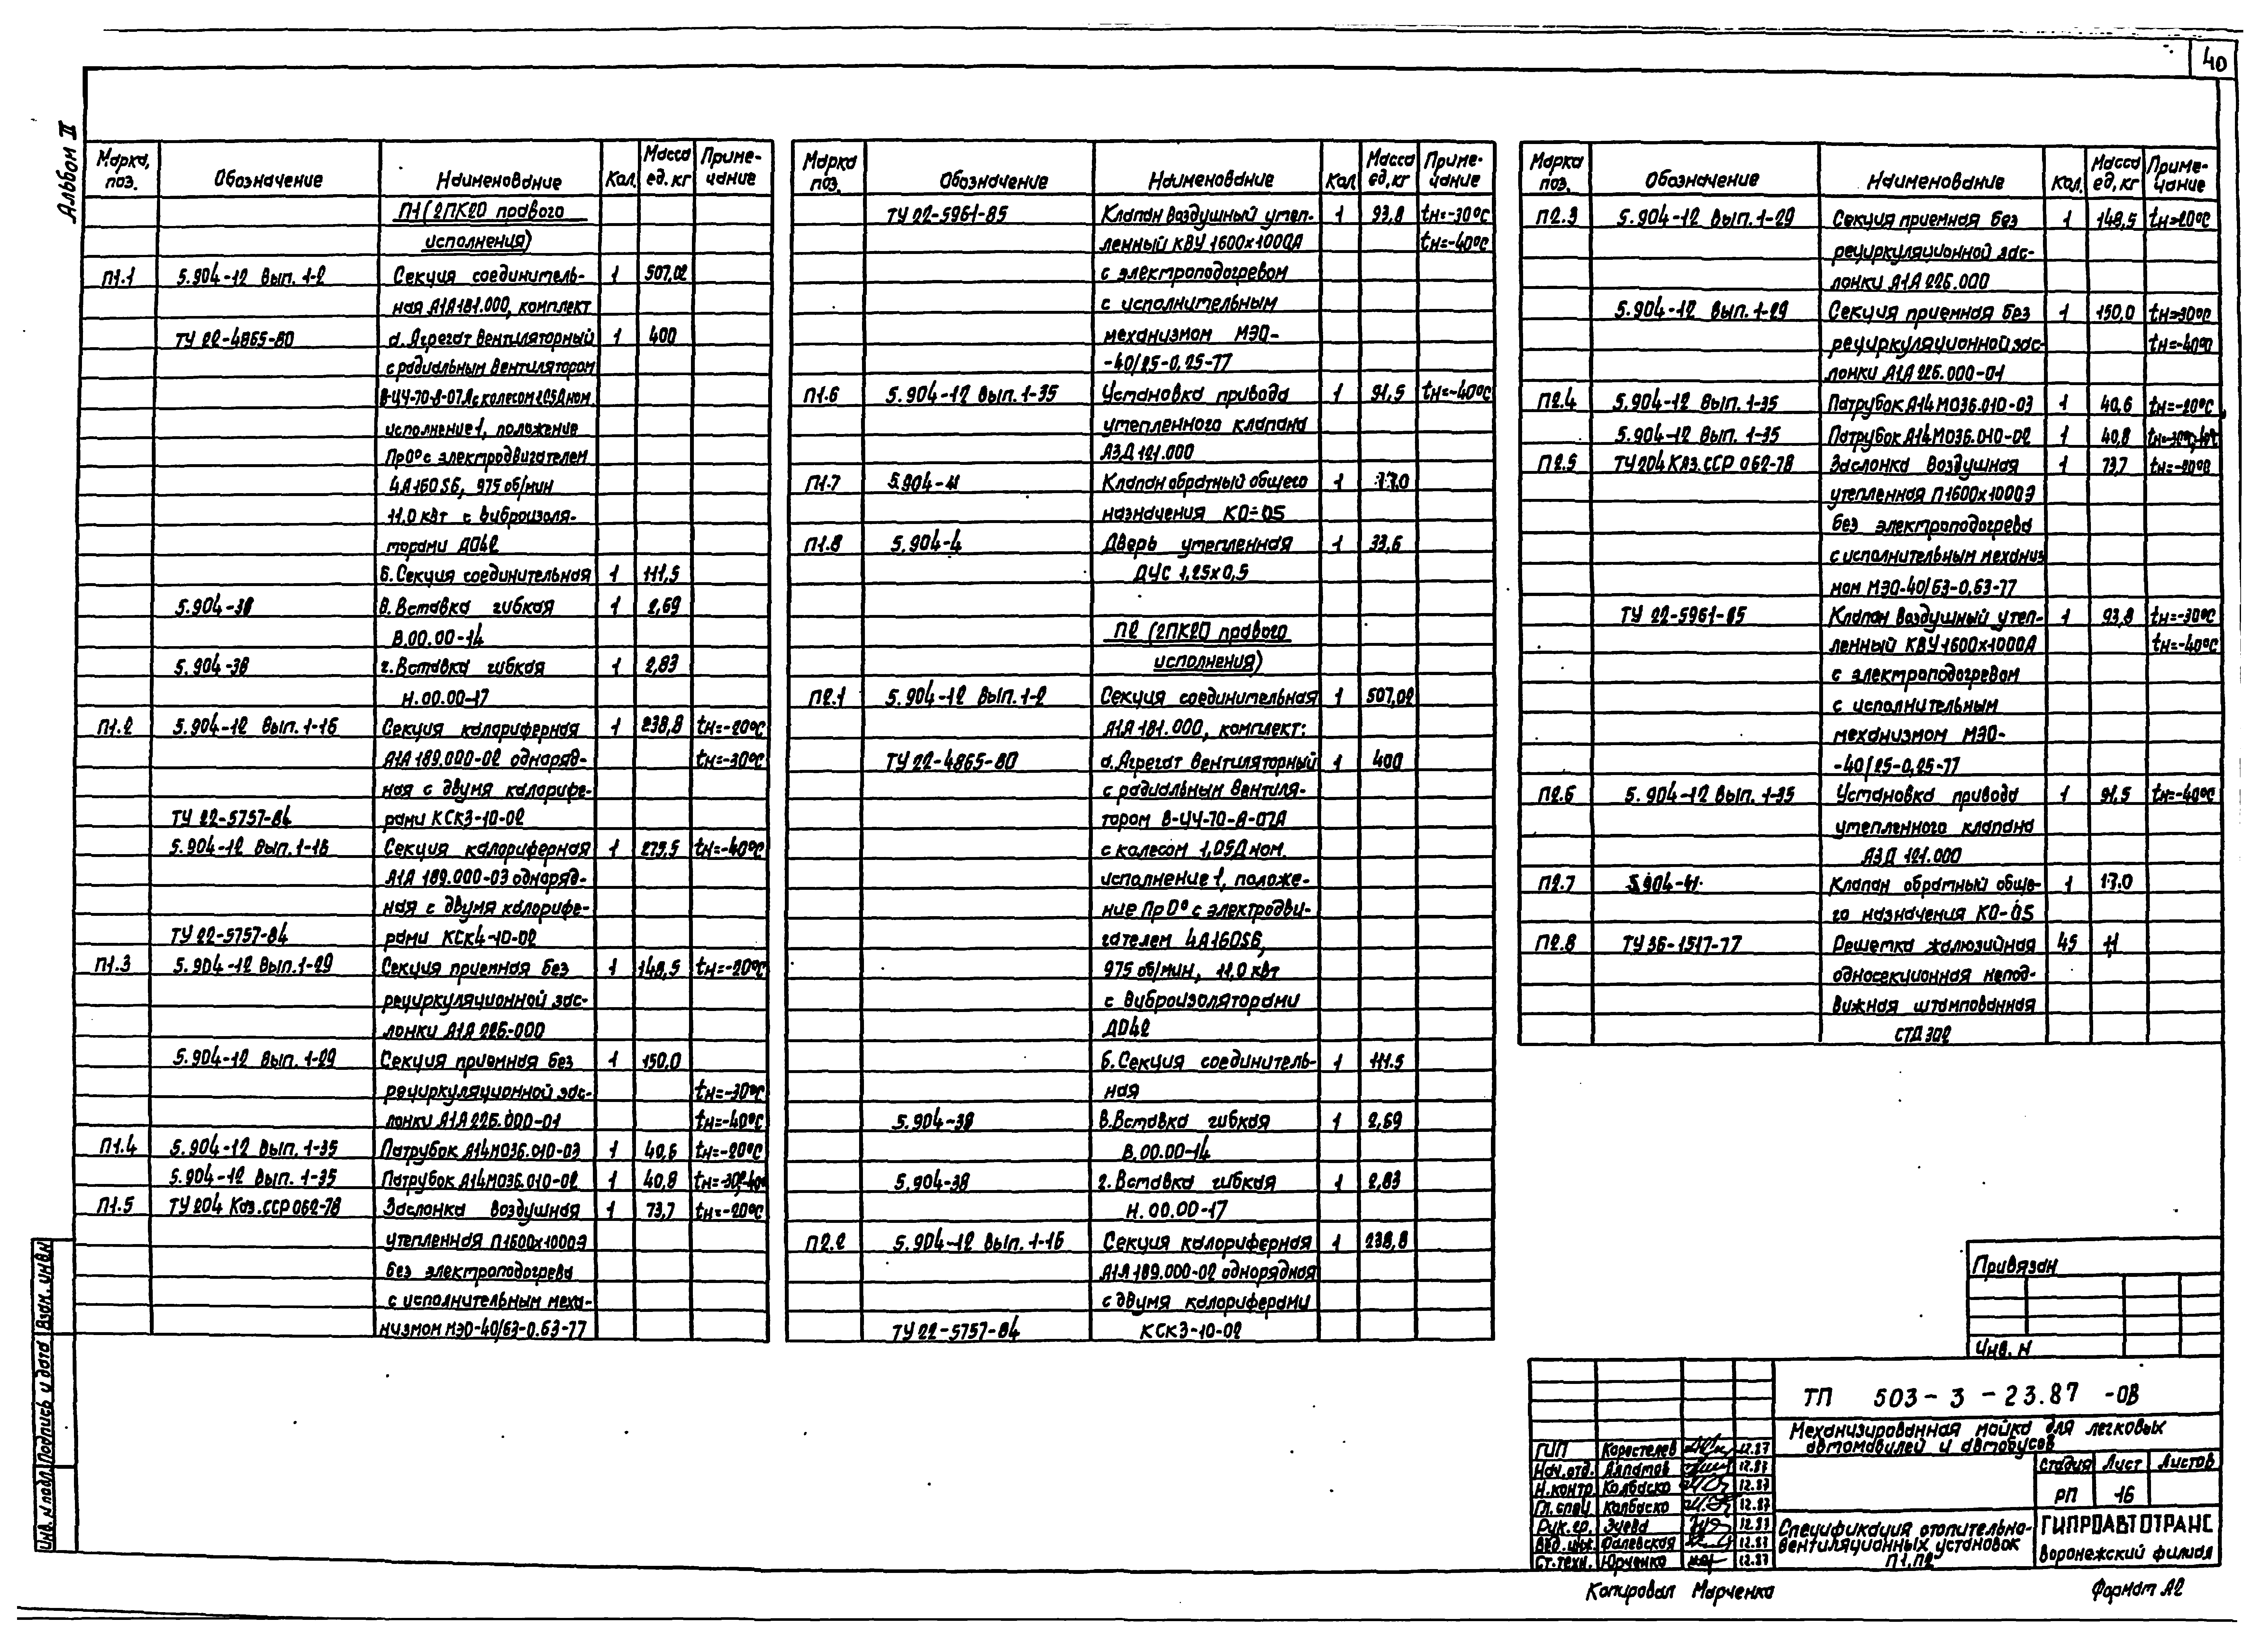 40
Альбом II
Марка, поз. Обозначение Наименование Кол. Масса ед. кг Приме-чание
П1 (2ПК20 правого
исполнения)
П1.1 5.904-12 Вып. 1-2 Секция соединитель- 1 507,02
ная А1А181.000, комплект
ТУ 22-4865-80 а. Агрегат вентиляторный 1 400
с радиальным вентилятором
В-ЦЧ-70-8-07А с колесом 1,05Дном.
исполнение 1, положение
Пр0° с электродвигателем
4А160S6, 975 об/мин
11.0 кВт с виброизоля-
торами ДО42
б. Секция соединительная 1 111,5
5.904-38 в. Вставка гибкая 1 2,69
В.00.00-14
5.904-38 г. Вставка гибкая 1 2,83
Н.00.00-17
П1.2 5.904-12 Вып. 1-16 Секция калориферная 1 238,8 tн=-20°С
А1А189.000-02 одноряд- tн=-30°С
ная с двумя калорифе-
ТУ 22-5757-84 рами КСк3-10-02
5.904-12 Вып. 1-16 Секция калориферная 1 275,5 tн=-40°С
А1А 189.000-03 одноряд-
ная с двумя калорифе-
ТУ 22-5757-84 рами КСк4-10-02
П1.3 5.904-12 Вып. 1-29 Секция приемная без 1 148,5 tн=-20°С
рециркуляционной зас-
лонки А1А 226-000
5.904-12 Вып. 1-29 Секция приемная без 1 150,0
рециркуляционной зас- tн=-30°С
лонки А1А 226.000-01 tн=-40°С
П1.4 5.904-12 Вып. 1-35 Патрубок А14М036.010-03 1 40,6 tн=-20°С
5.904-12 Вып. 1-35 Патрубок А14М036.010-02 1 40,8 tн=-30°,-40°
П1.5 ТУ 204 Каз.ССР 062-78 Заслонка воздушная 1 73,7 tн=-20°С
утепленная П1600х1000Э
без электроподогрева
с исполнительным меха-
низмом МЭО-40/63-0.63-77
Марка поз. Обозначение Наименование Кол Масса ед, кг Приме-чание
ТУ 22-5961-85 Клапан воздушный утеп- 1 93,8 tн=-30°С
ленный КВУ 1600х1000А tн=-40°С
с электроподогревом
с исполнительным
механизмом МЭО-
-40/25-0,25-77
П1.6 5.904-12 Вып. 1-35 Установка привода 1 91,5 tн=-40°С
утепленного клапана
АЗД 121.000
П1.7 5.904-41 Клапан обратный общего 1 17.0
назначения КО-05
П1.8 5.904-4 Дверь утепленная 1 33,6
ДУС 1,25х0,5
П2 (2ПК20 правого
исполнения)
П2.1 5.904-12 Вып. 1-2 Секция соединительная 1 507,02
А1А 181.000, комплект:
ТУ 22-4865-80 а. Агрегат вентиляторный 1 400
с радиальным вентиля-
тором В-ЦЧ-70-8-07А
с колесом 1,05Дном.
исполнение 1, положе-
ние Пр0° с электродви-
гателем 4А160S6,
975 об/мин, 11,0 кВт
с виброизоляторами
ДО42
б. Секция соединитель- 1 111.5
ная
5.904-38 в. Вставка гибкая 1 2,69
В.00.00-14
5.904-38 г. Вставка гибкая 1 2,83
Н.00.00-17
П2.2 5.904-12 Вып. 1-16 Секция калориферная 1 238,8
А1А 189.000-02 однорядная
с двумя калориферами
ТУ 22-5757-84 КСК3-10-02
Марка поз. Обозначение Наименование Кол. Масса ед, кг Приме-чание
П2.3 5.904-12 Вып. 1-29 Секция приемная без 1 148,5 tн=-20°С
рециркуляционной зас-
лонки А1А 226.000
5.904-12 Вып. 1-29 Секция приемная без 1 150,0 tн=-30°С
рециркуляционной зас- tн=-40°С
лонки А1А 226.000-01
П2.4 5.904-12 Вып. 1-35 Патрубок А14М036.010-03 1 40,6 tн=-20°С
5.904-12 Вып. 1-35 Патрубок А14М036.010-02 1 40,8 tн=-30°,-40°С
П2.5 ТУ 204 КАЗ.ССР 062-78 Заслонка воздушная 1 73,7 tн=-20°С
утепленная П1600х1000Э
без электроподогрева
с исполнительным механиз
мом МЭО-40/63-0,63-77
ТУ 22-5961-85 Клапан воздушный утеп- 1 93,8 tн=-30°С
ленный КВУ 1600х1000А tн=-40°С
с электроподогревом
с исполнительным
механизмом МЭО-
-40/25-0,25-77
П2.6 5.904-12 Вып. 1-35 Установка привода 1 91,5 tн=-40°С
утепленного клапана
АЗД 121.000
П2.7 5.904-41 Клапан обратный обще- 1 17.0
го назначения КО-05
П2.8 ТУ 36-1517-77 Решетка жалюзийная 45 1,1
односекционная непод-
вижная штампованная
СТД 302
Привязан
Инв. N
ТП 503-3-23.87 -ОВ
Механизированная мойка для легковых
автомобилей и автобусов
ГИП Коростелев 12.87
Нач. отд. Алпатов 12.87
Н. контр. Колбаско 12.87
Гл. спец. Колбаско 12.87
Рук. гр. Зуева 12.87
Вед. инж. Фалевская 12.87
Ст. техн. Юрченко 12.87
Стадия Лист Листов
РП 16
Спецификация отопительно-
вентиляционных установок
П1, П2
ГИПРОАВТОТРАНС
Воронежский филиал
Копировал Марченко
Формат А2
Инв. N подл. Подпись и дата Взам. инв. N